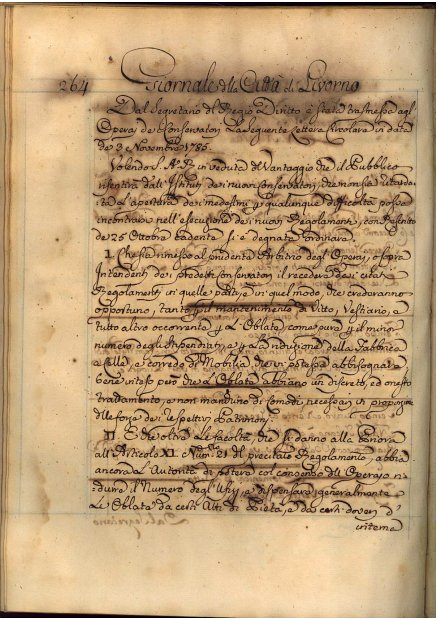 264 Giornale della Città di Livorno
Dal Segretario del Regio Diritto è stata trasmessa agl'
Operaj dei Conservatorj La Seguente Lettera Circolare in data
de 3 Novembre 1785.
Volendo S. A. R. in veduta del Vantaggio che il Pubblico
risentirà dall' dei nuovi Conservatorj, che non sia ritarda
ta L'apertura dei medesimi p qualunque difficoltà possa
incontrarsi nell'esecuzione dei nuovi Regolamenti, con
de 25 Ottobre cadente si è degnata Ordinare.
I. Che sia rimesso al prudente Arbitrio degl' Operaj, o Sopra
Intendenti dei predetti Conservatorj il recedere dai citati
Regolamenti in quelle parti, e in quel modo, che crederanno
opportuno, tanto p il mantenimento di Vitto, Vestiario, e
tutto altro occorrente p L'Oblate, come pure p il minor
numero degli Stipendiati, e p La riduzione della Fabbrica
a Celle, e corredo di Mobilia che in possa abbisognare
bene inteso però che L'Oblate abbiano un discreto, ed onesto
trattamento, e non manchino di Comodi necessarj in proporzione
delle forze dei rispettivi Patrimonj.
II. E che oltre alle facoltà, che si danno alla
all'Articolo XI. Num.º 21 del precitato Regolamento, abbia
ancora L'Autorità di potere col consenso dell' Operajo ri
durre il Numero degl' Ufizj, e dispensare generalmente
Le Oblate da certi Atti di Pietà, e da certi doveri d'
interne